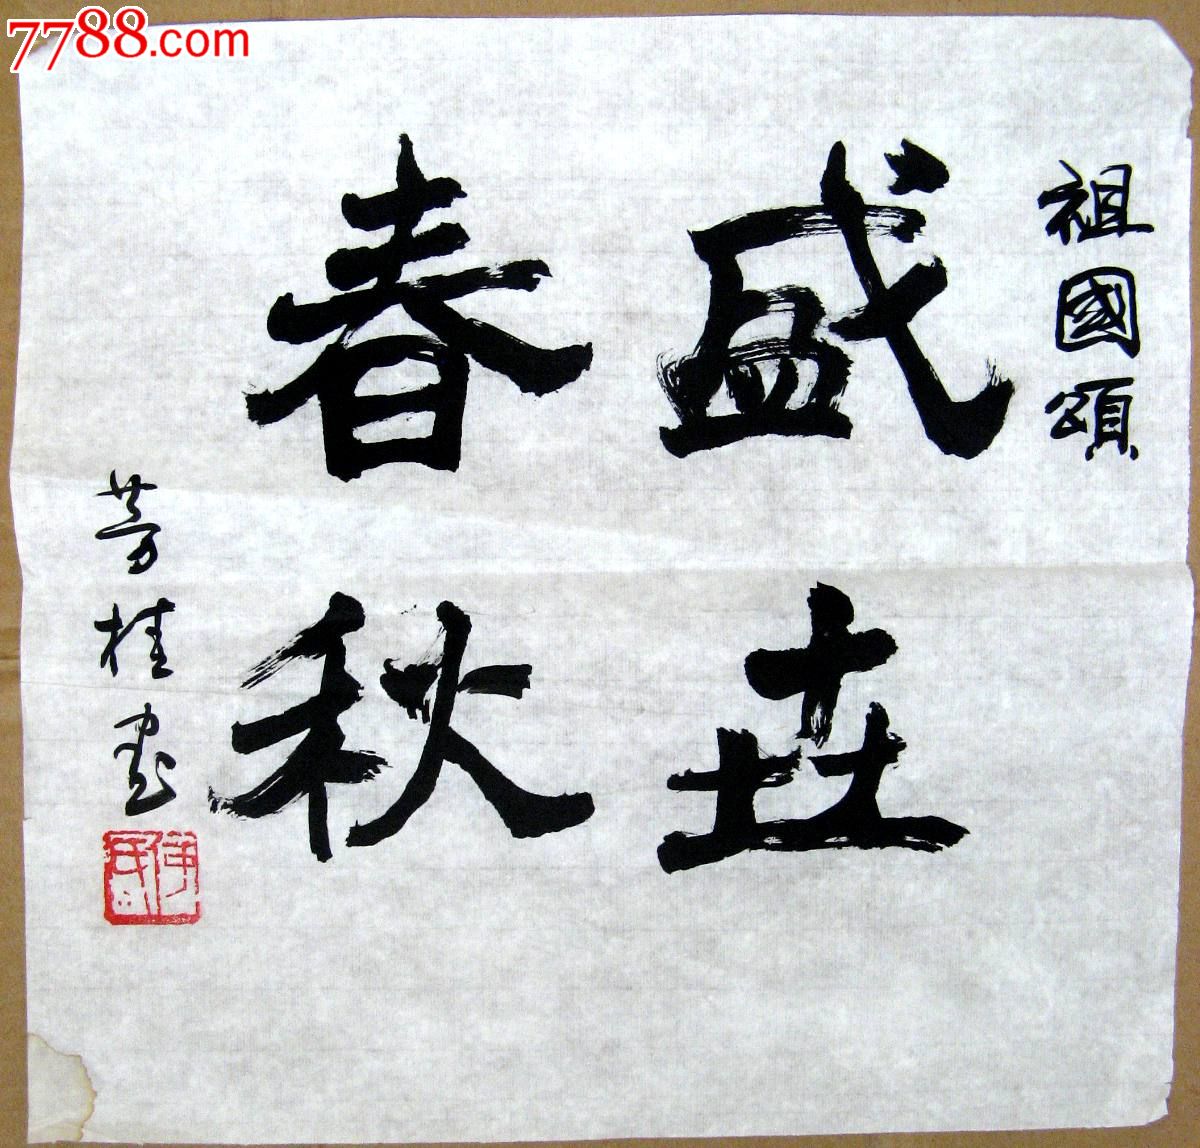 7788.com
祖國頌
盛世
春秋
芳桂書